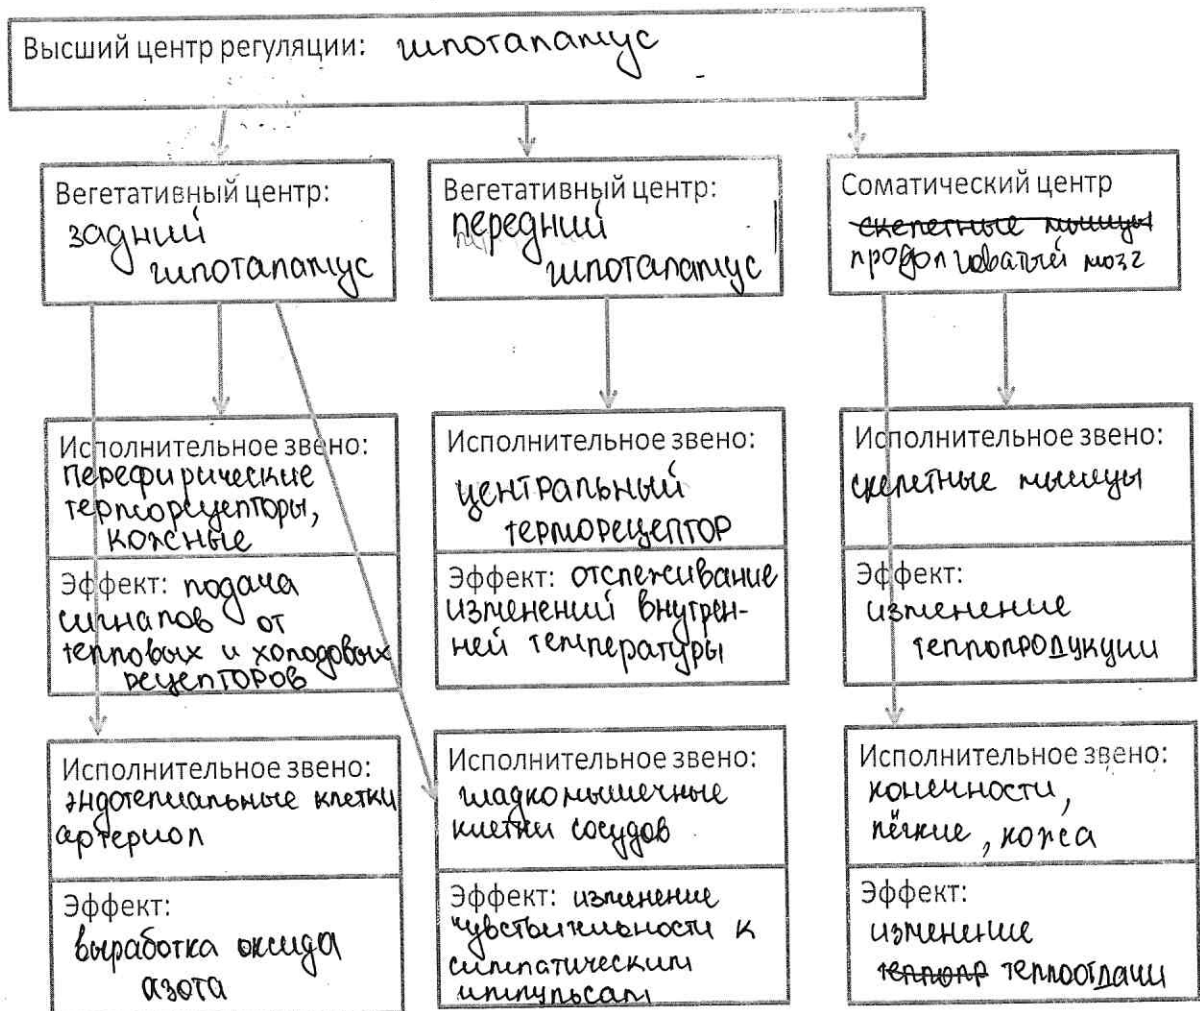 Высший центр регуляции: гипоталамус
Вегетативный центр:
задний
гипоталамус
Вегетативный центр:
передний
гипоталамус
Соматический центр
скелетные мышцы
продолговатый мозг
Исполнительное звено:
перефирические
терморецепторы,
кожные
Эффект: подача
сигналов от
тепловых и холодовых
рецепторов
Исполнительное звено:
центральный
терморецептор
Эффект: отслеживание
изменений внутрен-
ней температуры
Исполнительное звено:
скелетные мышцы
Эффект:
изменение
теплопродукции
Исполнительное звено:
эндотелиальные клетки
артериол
Эффект:
выработка оксида
азота
Исполнительное звено:
гладкомышечные
клетки сосудов
Эффект: изменение
чувствительности к
симпатическим
импульсам
Исполнительное звено:
конечности,
лёгкие, кожа
Эффект:
изменение
теплопр теплоотдачи